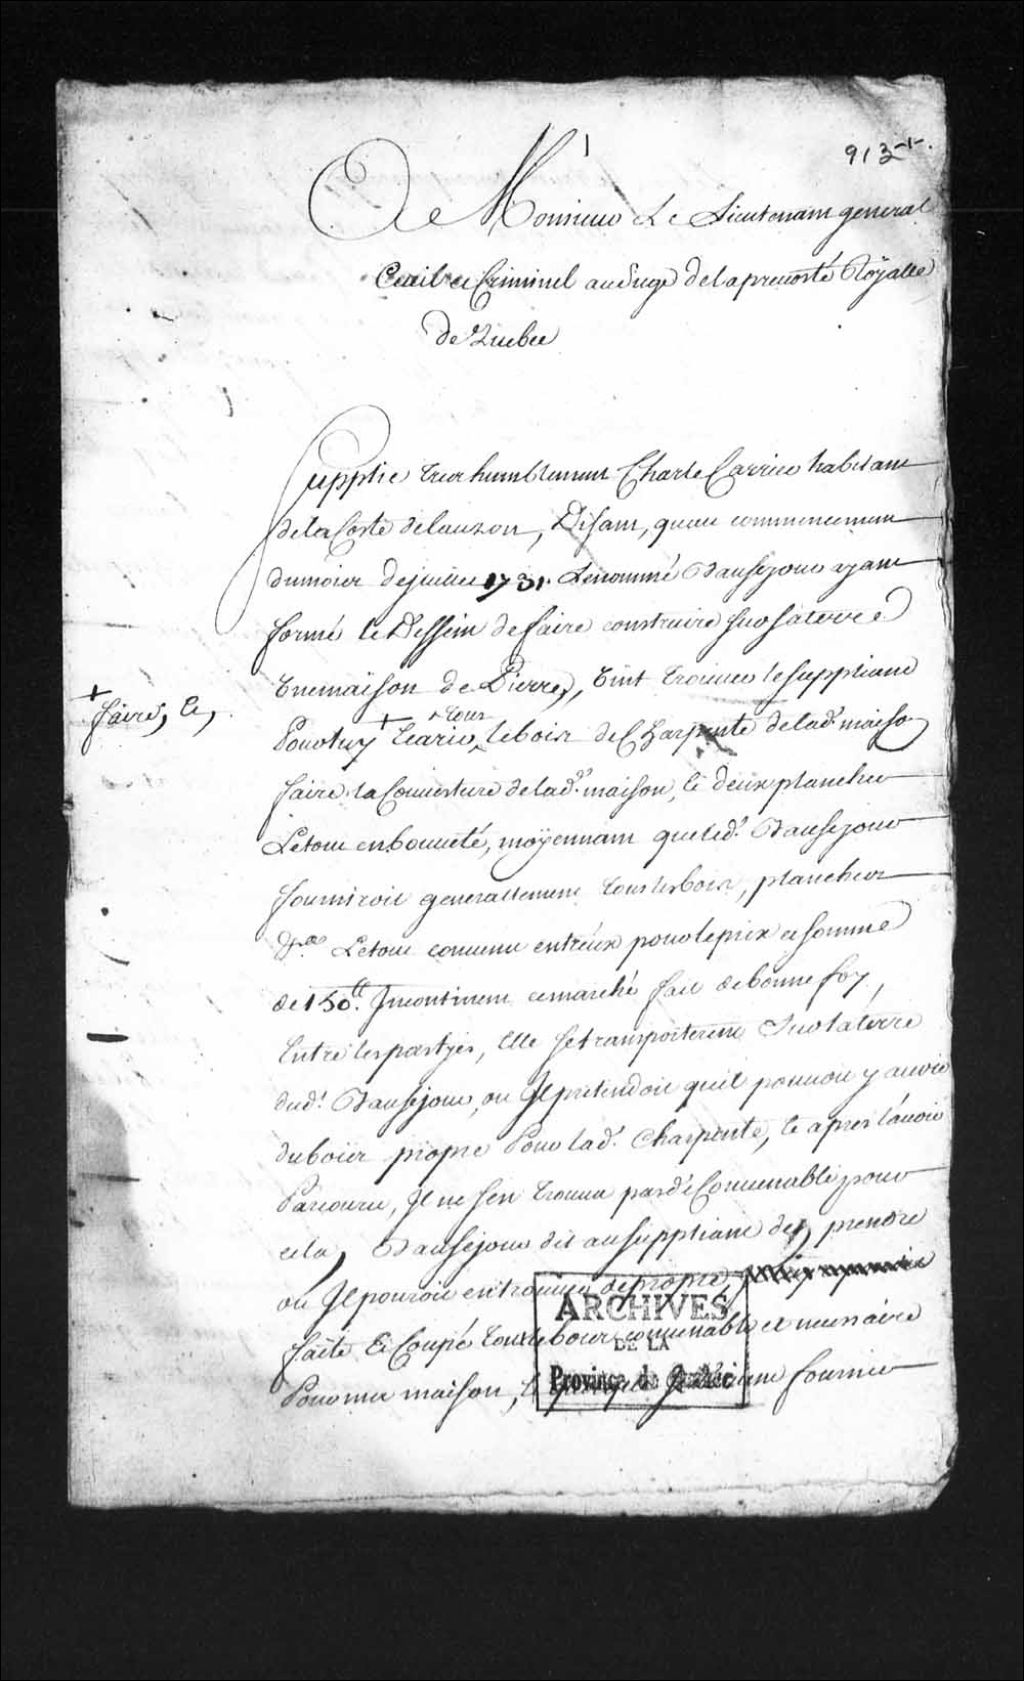 1
913-1-.
A Monsieur Le Lieutenant general
Ciuil et Criminel au Siege de la preuosté Royalle
de Quebec
Supplie tres humblement Charle Carrier habitant
de la Coste de lauzon, Disant, qu'au commencement
du mois de juillet 1731. Le nommé Dausejour ayant
formé le Dessein de faire construire sur sa terre
Une maison de Pierre, Vint trouuer le suppliant
+
faire, et,
Pour luy + tous
le bois de Charpente de lad.e maison
faire la Couuerture de lad.e maison, et deux plancher
Le tout en bouueté, moÿennant que led.t Dausejour
fourniroit generallement tous les bois, plancher
&.a Le tout conuenu entr'eux pour le prix et somme
de 150.tt Incontinent ce marché fait de bonne foy,
Entre les partyes, Elle se transporterent sur la terre
dud.t Dausejour, ou Il pretendoit qu'il pouuoit y auoir
du bois propre Pour lad.e Charpente, et apres l'auoir
Parcouru, Il ne s'en trouua pas de Conuenable pour
cela, Dausejour dit au suppliant d'en prendre
ou Il pouroit en trouuer de propre,
faite Et Coupé tout le bois conuenable et necessaire
Pour une maison, fournir
ARCHIVES
DE LA
Province de Québec